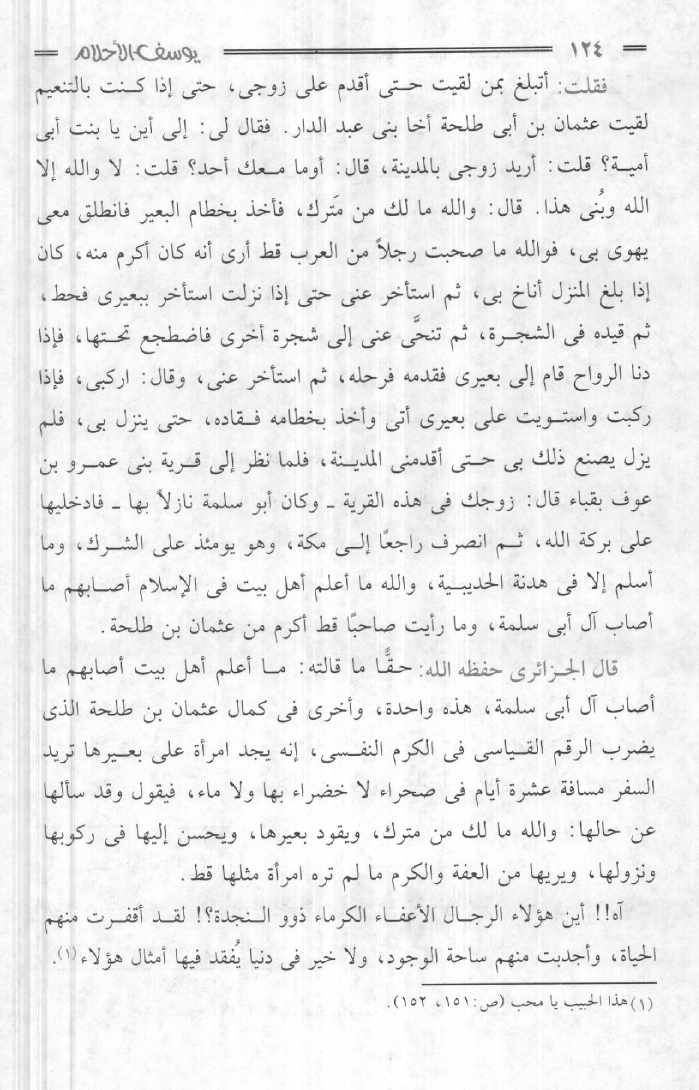 ١٢٤ يوسف الأحلام
فقلت: أتبلغ بمن لقيت حتى أقدم على زوجى، حتى إذا كنت بالتنعيم
لقيت عثمان بن أبى طلحة أخا بنى عبد الدار. فقال لى: إلى أين يا بنت أبى
أمية؟ قلت: أريد زوجى بالمدينة، قال: أوما معك أحد؟ قلت: لا والله إلا
الله وبُنى هذا. قال: والله ما لك من مَترك، فأخذ بخطام البعير فانطلق معى
يهوى بى، فوالله ما صحبت رجلاً من العرب قط أرى أنه كان أكرم منه، كان
إذا بلغ المنزل أناخ بى، ثم استأخر عنى حتى إذا نزلت استأخر ببعيرى فحط،
ثم قيده فى الشجرة، ثم تنحَّى عنى إلى شجرة أخرى فاضطجع تحتها، فإذا
دنا الرواح قام إلى بعيرى فقدمه فرحله، ثم استأخر عنى، وقال: اركبى، فإذا
ركبت واستويت على بعيرى أتى وأخذ بخطامه فقاده، حتى ينزل بى، فلم
يزل يصنع ذلك بى حتى أقدمنى المدينة، فلما نظر إلى قرية بنى عمرو بن
عوف بقباء قال: زوجك فى هذه القرية ـ وكان أبو سلمة نازلاً بها ـ فادخليها
على بركة الله، ثم انصرف راجعًا إلى مكة، وهو يومئذ على الشرك، وما
أسلم إلا فى هدنة الحديبية، والله ما أعلم أهل بيت فى الإسلام أصابهم ما
أصاب آل أبى سلمة، وما رأيت صاحبًا قط أكرم من عثمان بن طلحة.
قال الجزائرى حفظه الله: حقًّا ما قالته: ما أعلم أهل بيت أصابهم ما
أصاب آل أبى سلمة، هذه واحدة، وأخرى فى كمال عثمان بن طلحة الذى
يضرب الرقم القياسى فى الكرم النفسى، إنه يجد امرأة على بعيرها تريد
السفر مسافة عشرة أيام فى صحراء لا خضراء بها ولا ماء، فيقول وقد سألها
عن حالها: والله ما لك من مترك، ويقود بعيرها، ويحسن إليها فى ركوبها
ونزولها، ويريها من العفة والكرم ما لم تره امرأة مثلها قط.
آه!! أين هؤلاء الرجال الأعفاء الكرماء ذوو النجدة؟! لقد أقفرت منهم
الحياة، وأجدبت منهم ساحة الوجود، ولا خير فى دنيا يُفقد فيها أمثال هؤلاء (١).
(١) هذا الحبيب يا محب (ص: ١٥١، ١٥٢).